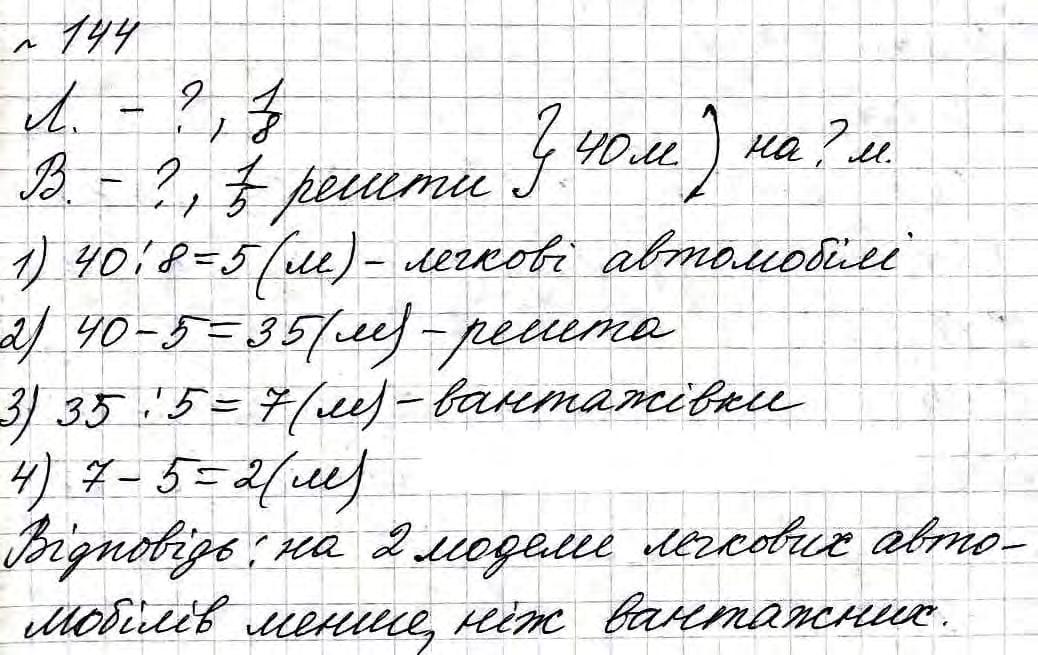 ~ 144
Л. – ?, 1/8
В. – ?, 1/5 решти } 40 м. ) на ? м.
1) 40 : 8 = 5 (м) – легкові автомобілі
2) 40 – 5 = 35 (м) – решта
3) 35 : 5 = 7 (м) – вантажівки
4) 7 – 5 = 2 (м)
Відповідь: на 2 моделі легкових авто-
мобілів менше, ніж вантажних.